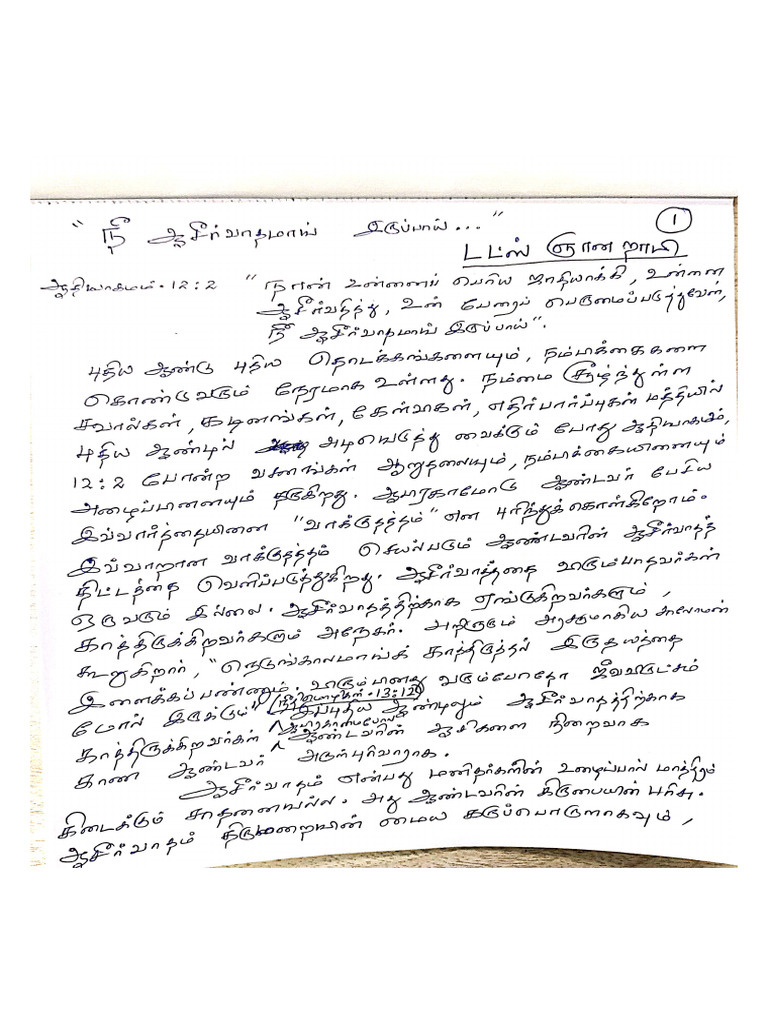 "நீ ஆசீர்வாதமாய் இருப்பாய்..."
1
டட்லஸ் ஞானறாயி
ஆதியாகமம். 12:2 "நான் உன்னைப் பெரிய ஜாதியாக்கி, உன்னை
ஆசீர்வதித்து, உன் பேரைப் பெருமைப்படுத்துவேன்,
நீ ஆசீர்வாதமாய் இருப்பாய்".
புதிய ஆண்டு புதிய தொடக்கங்களையும், நம்பிக்கைகளை
கொண்டுவரும் நேரமாக உள்ளது. நம்மை சூழ்ந்துள்ள
சவால்கள், கடினங்கள், கேள்விகள், எதிர்பார்ப்புகள் மத்தியில்
புதிய ஆண்டில் அடியெடுத்து வைக்கும் போது ஆதியாகமம்,
12:2 போன்ற வசனங்கள் ஆறுதலையும், நம்பிக்கையினையும்
அழைப்பினையும் தருகிறது. ஆபிரகாமோடு ஆண்டவர் பேசிய
இவ்வார்த்தையினை "வாக்குதத்தம்" என புரிந்துக்கொள்கிறோம்.
இவ்வாறான வாக்குதத்தம் செயல்படும் ஆண்டவரின் ஆசீர்வாதத்
திட்டத்தை வெளிப்படுத்துகிறது. ஆசீர்வாதத்தை விரும்பாதவர்கள்
ஒருவரும் இல்லை. ஆசீர்வாதத்திற்காக ஏங்குகிறவர்களும்,
காத்திருக்கிறவர்களும் அநேகர். அறிஞரும் அரசருமாகிய சாலோமன்
கூறுகிறார், "நெடுங்காலமாய்க் காத்திருத்தல் இருதயத்தை
இளைக்கப்பண்ணும், விரும்பினது வரும்போதோ ஜீவவிருட்சம்
போல் இருக்கும்" (நீதிமொழிகள். 13:12) இப்புதிய ஆண்டிலும் ஆசீர்வாதத்திற்காக
காத்திருக்கிறவர்கள் ஆபிரகாமைபோல ஆண்டவரின் ஆசிகளை நிறைவாக
காண ஆண்டவர் அருள்புரிவாராக.
ஆசீர்வாதம் என்பது மனிதர்களின் உழைப்பால் மாத்திரம்
கிடைக்கும் சாதனையல்ல. அது ஆண்டவரின் கிருபையின் பரிசு.
ஆசீர்வாதம் திருமறையின் மைய கருப்பொருளாகவும்,